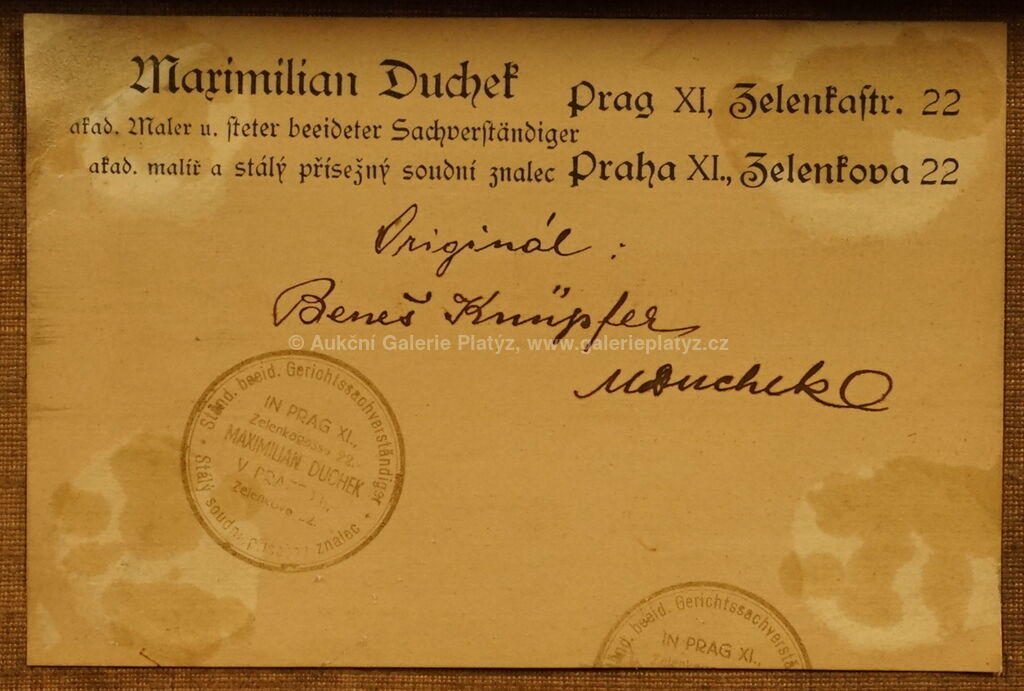 Maximilian Duchek
Prag XI, Zelenkastr. 22
akad. Maler u. steter beeideter Sachverständiger
akad. malíř a stálý přísežný soudní znalec Praha XI., Zelenkova 22
Originál :
Beneš Knüpfer
© Aukční Galerie Platýz, www.galerieplatyz.cz
MDuchek
Ständ. beeid. Gerichtssachverständiger
IN PRAG XI.,
Zelenkagasse 22.
MAXIMILIAN DUCHEK
V
Zelenkova
Stálý soudní znalec
beeid. Gerichtssachverständiger
IN PRAG XI.,